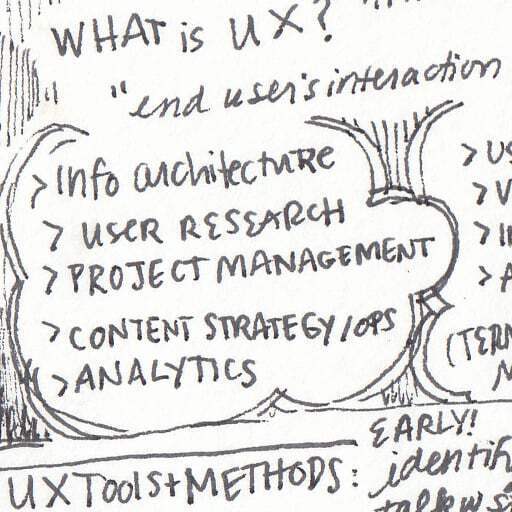 WHAT is UX?
"end user's interaction
> Info architecture
> USER RESEARCH
> PROJECT MANAGEMENT
> CONTENT STRATEGY/OPS
> ANALYTICS
> US
> V
> I
> A
(TERM
EARLY!
UX TOOLS + METHODS:
identif
talk w